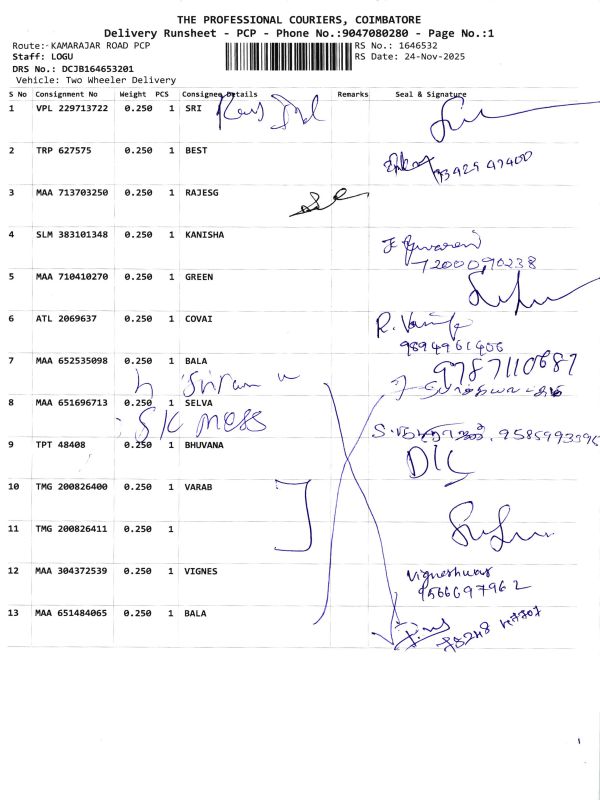 THE PROFESSIONAL COURIERS, COIMBATORE
Delivery Runsheet - PCP - Phone No.:9047080280 - Page No.:1
Route: KAMARAJAR ROAD PCP RS No.: 1646532
Staff: LOGU RS Date: 24-Nov-2025
DRS No.: DCJB164653201
Vehicle: Two Wheeler Delivery
S No Consignment No Weight PCS Consignee Details Remarks Seal & Signature
1 VPL 229713722 0.250 1 SRI
2 TRP 627575 0.250 1 BEST
93425 47400
3 MAA 713703250 0.250 1 RAJESG
4 SLM 383101348 0.250 1 KANISHA
7200090238
5 MAA 710410270 0.250 1 GREEN
6 ATL 2069637 0.250 1 COVAI
9894961406
7 MAA 652535098 0.250 1 BALA 9787110687
Sriram
8 MAA 651696713 0.250 1 SELVA
SK MESS
9 TPT 48408 0.250 1 BHUVANA
10 TMG 200826400 0.250 1 VARAB
11 TMG 200826411 0.250 1
12 MAA 304372539 0.250 1 VIGNES Vigneshwar
9566697962
13 MAA 651484065 0.250 1 BALA